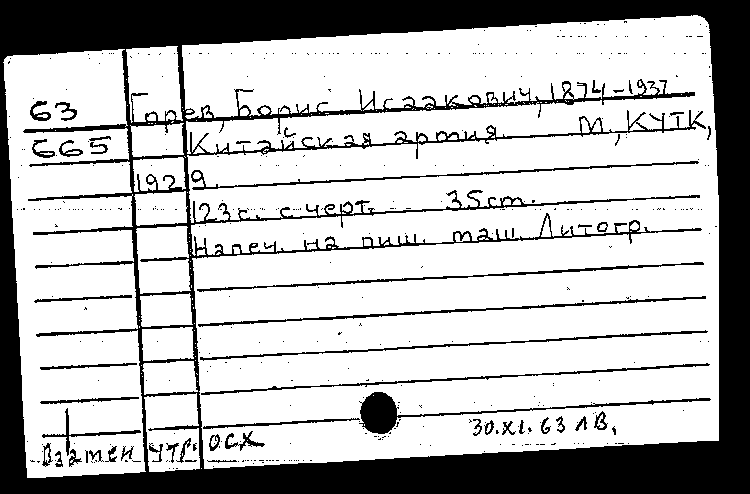 63 Горев, Борис Исаакович, 1874-1937
665 Китайская армия. М., КУТК,
1929.
123с. с черт. 35cm.
Напеч. на пиш. маш. Литогр.
Взамен утр. осх 30.XI.63 ЛВ.